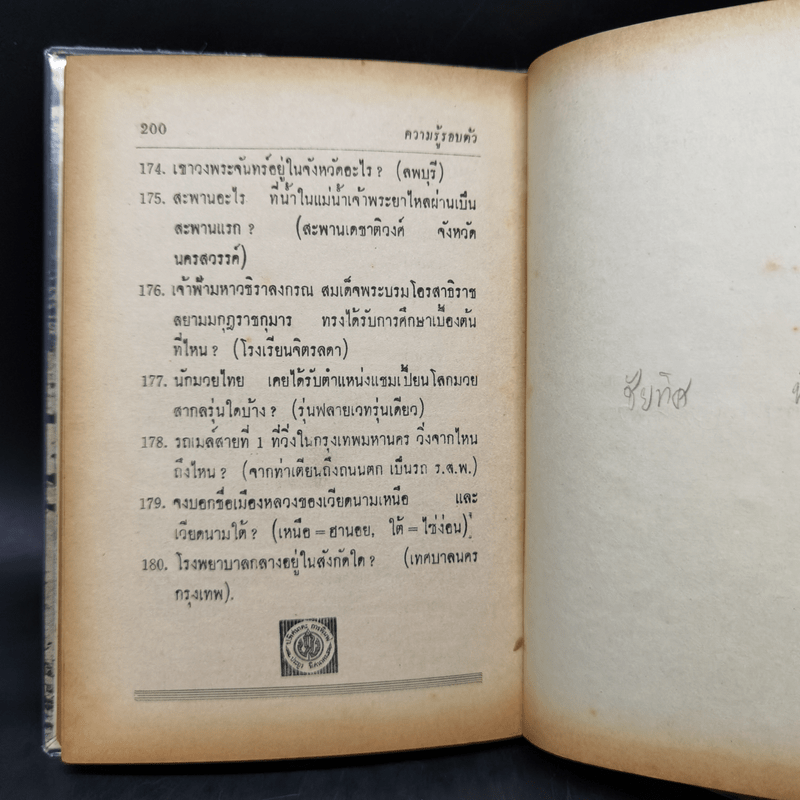 200 ความรู้รอบตัว
174. เขาวงพระจันทร์อยู่ในจังหวัดอะไร ? (ลพบุรี)
175. สะพานอะไร ที่น้ำในแม่น้ำเจ้าพระยาไหลผ่านเป็น
สะพานแรก ? (สะพานเดชาติวงศ์ จังหวัด
นครสวรรค์)
176. เจ้าฟ้ามหาวชิราลงกรณ สมเด็จพระบรมโอรสาธิราช
สยามมกุฎราชกุมาร ทรงได้รับการศึกษาเบื้องต้น
ที่ไหน ? (โรงเรียนจิตรลดา)
177. นักมวยไทย เคยได้รับตำแหน่งแชมเปี้ยนโลกมวย
สากลรุ่นใดบ้าง ? (รุ่นฟลายเวทรุ่นเดียว)
178. รถเมล์สายที่ 1 ที่วิ่งในกรุงเทพมหานคร วิ่งจากไหน
ถึงไหน ? (จากท่าเตียนถึงถนนตก เป็นรถ ร.ส.พ.)
179. จงบอกชื่อเมืองหลวงของเวียดนามเหนือ และ
เวียดนามใต้ ? (เหนือ = ฮานอย, ใต้ = ไซ่ง่อน)
180. โรงพยาบาลกลางอยู่ในสังกัดใด ? (เทศบาลนคร
กรุงเทพ).
ชัยทิศ